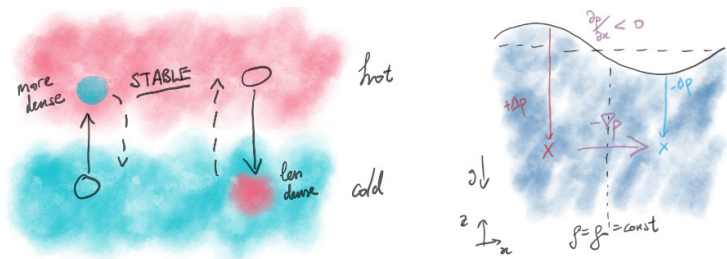 more
dense
STABLE
hot
less
dense
cold
∂p/∂x < 0
+Δp
-Δp
-∇p
x
x
g
z
x
ρ = ρ = const